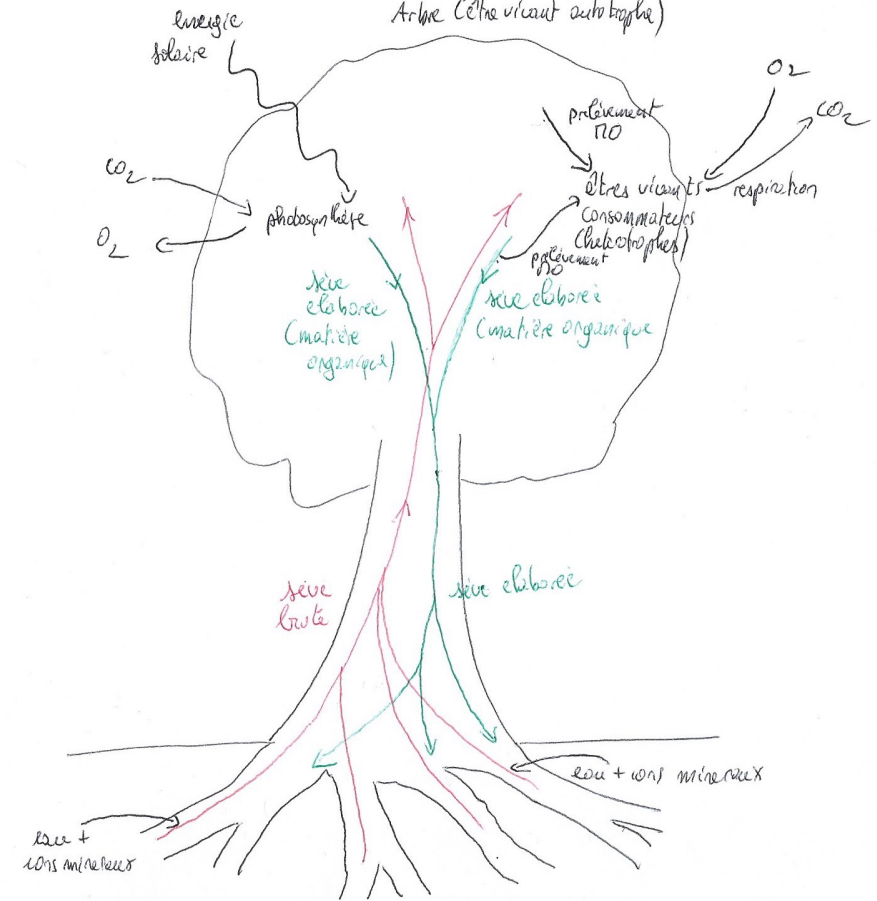 Arbre (être vivant autotrophe)
énergie
solaire
O2
CO2
prélèvement
MO
CO2
êtres vivants
respiration
consommateurs
(hétérotrophes)
photosynthèse
O2
prélèvement
MO
sève
élaborée
(matière
organique)
sève élaborée
(matière organique
sève
brute
sève élaborée
eau + ions minéraux
eau +
ions minéraux